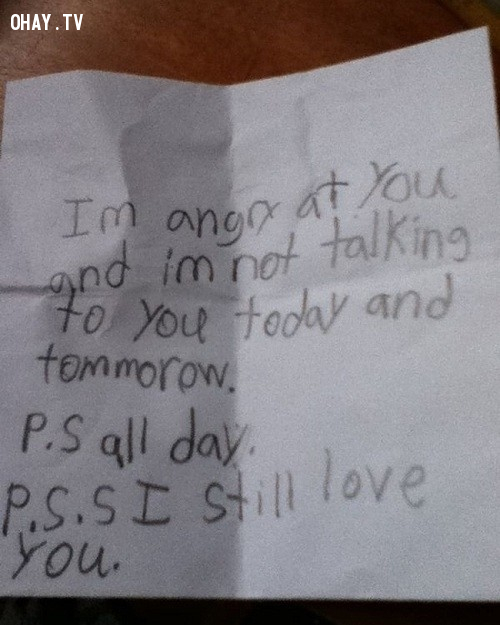 OHAY.TV
Im angry at you
and im not talking
to you today and
tommorow.
P.S all day.
P.S.S I still love
you.